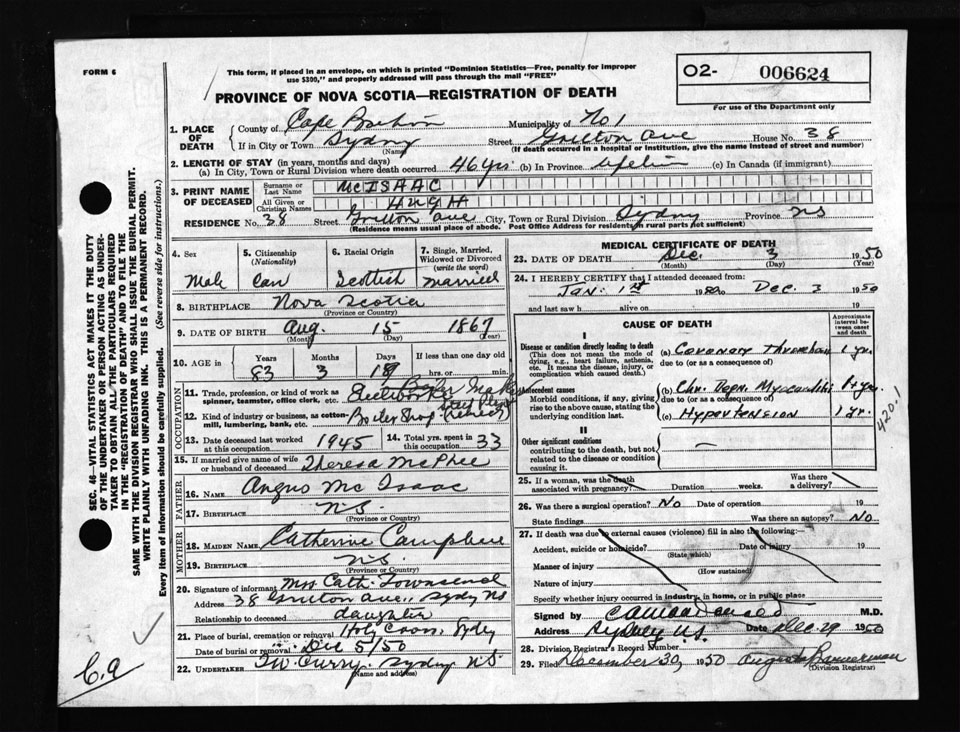 FORM 6
This form, if placed in an envelope, on which is printed "Dominion Statistics—Free, penalty for improper
use $300," and properly addressed will pass through the mail "FREE"
O2- 006624
For use of the Department only
PROVINCE OF NOVA SCOTIA—REGISTRATION OF DEATH
1. PLACE OF DEATH
County of Cape Breton Municipality of No 1
If in City or Town Sydney Street Ave House No. 38
(Name) (If death occurred in a hospital or institution, give the name instead of street and number)
2. LENGTH OF STAY (in years, months and days)
(a) In City, Town or Rural Division where death occurred 46 yrs (b) In Province (c) In Canada (if immigrant)
3. PRINT NAME OF DECEASED
Surname or Last Name McISAAC
All Given or Christian Names HUGH
RESIDENCE No. 38 Street Ave City, Town or Rural Division Sydney Province NS
(Residence means usual place of abode. Post Office Address for residents in rural parts not sufficient)
4. Sex
Male
5. Citizenship
(Nationality)
Can
6. Racial Origin
Scottish
7. Single, Married, Widowed or Divorced
(write the word)
married
8. BIRTHPLACE Nova Scotia
(Province or Country)
9. DATE OF BIRTH Aug. 15 1867
(Month) (Day) (Year)
10. AGE in Years 83 Months 3 Days 18 If less than one day old
hrs. or min.
OCCUPATION
11. Trade, profession, or kind of work as
spinner, teamster, office clerk, etc. Steelworker Boiler Maker Steel Plant
12. Kind of industry or business, as cotton-
mill, lumbering, bank, etc. Boiler Shop (retired)
13. Date deceased last worked
at this occupation 1945
14. Total yrs. spent in
this occupation 33
15. If married give name of wife
or husband of deceased Theresa McPhee
FATHER
16. NAME Angus Mc Isaac
17. BIRTHPLACE N.S.
(Province or Country)
MOTHER
18. MAIDEN NAME Catherine Campbell
19. BIRTHPLACE N.S.
(Province or Country)
20. Signature of informant Mrs Cath. Townsend
Address 38 Ave., Sydney NS
Relationship to deceased daughter
21. Place of burial, cremation or removal Holy Cross, Sydney
Date of burial or removal Dec 5/50
22. UNDERTAKER T.W. Curry. Sydney N.S.
(Name and address)
MEDICAL CERTIFICATE OF DEATH
23. DATE OF DEATH Dec. 3 1950
(Month) (Day) (Year)
24. I HEREBY CERTIFY that I attended deceased from:
Jan: 1st 19 to Dec. 3 1950
and last saw h alive on 19
CAUSE OF DEATH
Approximate interval between onset and death
I
Disease or condition directly leading to death
(This does not mean the mode of dying, e.g., heart failure, asthenia, etc. It means the disease, injury, or complication which caused death.)
(a) Coronary Thrombosis 1 yr.
due to (or as a consequence of)
Antecedent causes
Morbid conditions, if any, giving rise to the above cause, stating the underlying condition last.
(b) Chr. Degn. Myocarditis 1+ yr.
due to (or as a consequence of)
(c) Hypertension 1 yr.
420.1
II
Other significant conditions
contributing to the death, but not related to the disease or condition causing it.
—
25. If a woman, was the death
associated with pregnancy? Duration weeks. Was there a delivery?
26. Was there a surgical operation? No Date of operation 19
State findings Was there an autopsy? No
27. If death was due to external causes (violence) fill in also the following:—
Accident, suicide or homicide? Date of injury 19
(State which)
Manner of injury
(How sustained)
Nature of injury
Specify whether injury occurred in industry, in home, or in public place
Signed by M.D.
Address Sydney N.S. Date Dec. 29 1950
28. Division Registrar's Record Number
29. Filed December 30, 1950 Bannerman
(Division Registrar)
SEC. 46—VITAL STATISTICS ACT MAKES IT THE DUTY
OF THE UNDERTAKER OR PERSON ACTING AS UNDER-
TAKER TO OBTAIN ALL THE PARTICULARS REQUIRED
IN THE "REGISTRATION OF DEATH" AND TO FILE THE
SAME WITH THE DIVISION REGISTRAR WHO SHALL ISSUE THE BURIAL PERMIT.
WRITE PLAINLY WITH UNFADING INK. THIS IS A PERMANENT RECORD.
Every item of information should be carefully supplied. (See reverse side for instructions.)